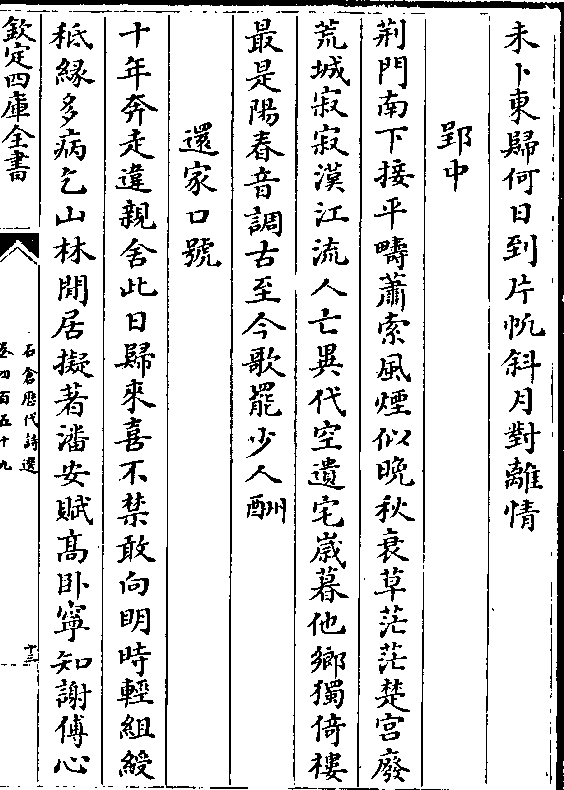 未卜東歸何日到片帆斜月對離情
郢中
荆門南下接平疇蕭索風煙似晚秋衰草茫茫楚宫廢
荒城寂寂漢江流人亡異代空遺宅嵗暮他鄉獨倚樓
最是陽春音調古至今歌罷少人酬
還家口號
十年奔走違親舍此日歸來喜不禁敢向明時輕組綬
秪縁多病乞山林閒居擬著潘安賦髙卧寧知謝傅心
欽定四庫全書
石倉歴代詩選
卷四百五十九
十三